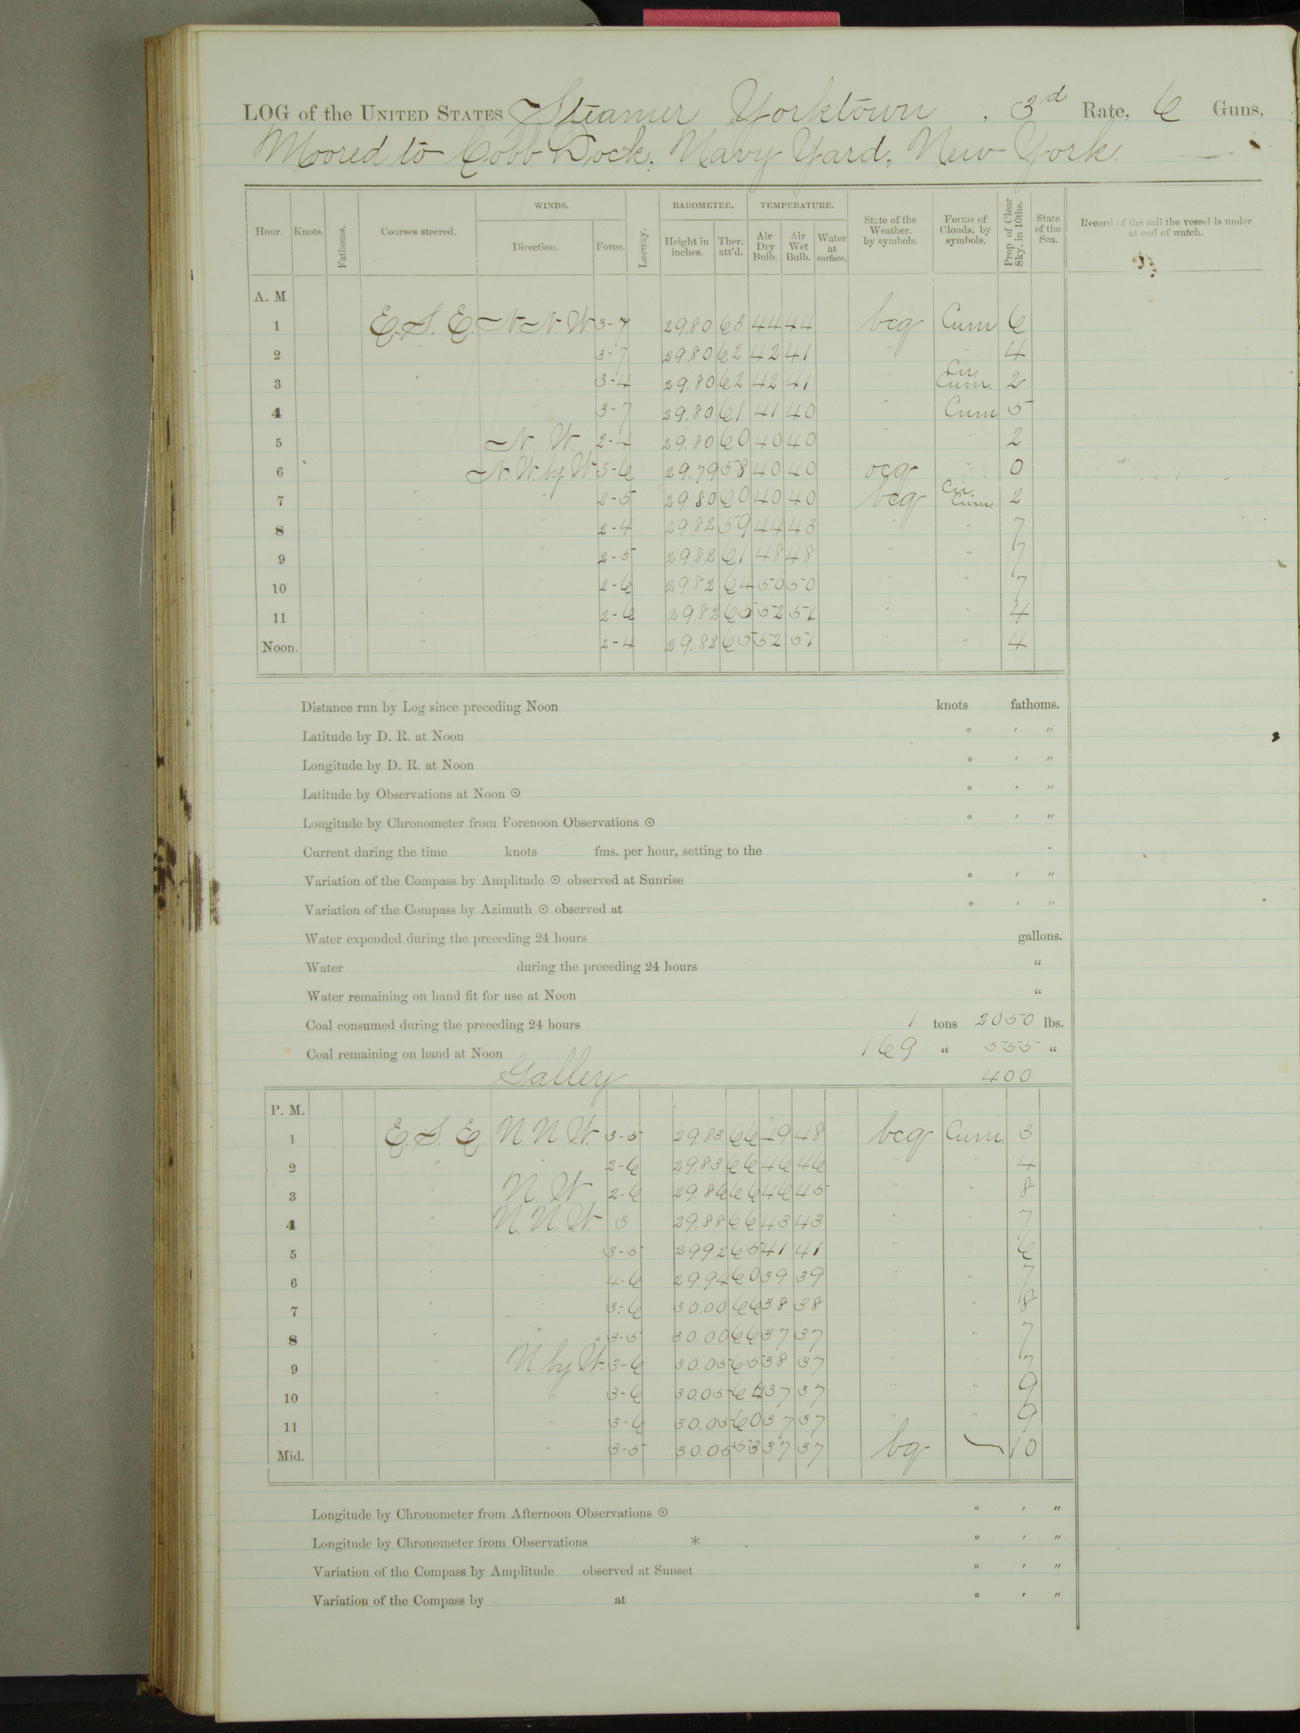 LOG of the UNITED STATES Steamer Yorktown, 3rd Rate, 6 Guns,
Moored to Cobb Dock, Navy Yard, New York.
Hour. Knots. Fathoms. Courses steered. WINDS. Direction. Force. Leeway. BAROMETER. Height in inches. Ther. att'd. TEMPERATURE. Air Dry Bulb. Air Wet Bulb. Water at surface. State of the Weather, by symbols. Forms of Clouds, by symbols. Prop. of Clear Sky, in 10ths. State of the Sea. Record of the sail the vessel is under at end of watch.
A. M
1 E. S. E. N N W 3-7 29.80 63 44 44 bcq Cum 6
2 " " 3-7 29.80 62 42 41 " " 4
3 " " 3-4 29.80 62 42 41 " Cir. Cum. 2
4 " " 3-7 29.80 61 41 40 " Cum 5
5 " N. W. 2-4 29.80 60 40 40 " " 2
6 " N. W. by W. 3-6 29.79 58 40 40 ocq " 0
7 " " 2-5 29.80 60 40 40 bcq Cir. Cum. 2
8 " " 2-4 29.82 59 44 43 " " 7
9 " " 2-5 29.82 61 48 48 " " 7
10 " " 2-6 29.82 64 50 50 " " 7
11 " " 2-6 29.82 65 52 51 " " 4
Noon. " " 2-4 29.82 65 52 51 " " 4
Distance run by Log since preceding Noon knots fathoms.
Latitude by D. R. at Noon ° ′ ″
Longitude by D. R. at Noon ° ′ ″
Latitude by Observations at Noon ☉ ° ′ ″
Longitude by Chronometer from Forenoon Observations ☉ ° ′ ″
Current during the time knots fms. per hour, setting to the .
Variation of the Compass by Amplitude ☉ observed at Sunrise ° ′ ″
Variation of the Compass by Azimuth ☉ observed at ° ′ ″
Water expended during the preceding 24 hours gallons.
Water during the preceding 24 hours "
Water remaining on hand fit for use at Noon "
Coal consumed during the preceding 24 hours 1 tons 2050 lbs.
Coal remaining on hand at Noon 169 " 555 "
Galley 400
P. M.
1 E. S. E. N N W. 3-5 29.83 66 49 48 bcq Cum. 3
2 " " 2-6 29.83 66 46 46 " " 4
3 " N. W. 2-6 29.86 66 46 45 " " 8
4 " N. N. W. 3 29.88 66 43 43 " " 7
5 " " 3-5 29.92 65 41 41 " " 6
6 " " 4-6 29.94 60 39 39 " " 7
7 " " 3-6 30.00 66 38 38 " " 8
8 " " 3-5 30.00 66 37 37 " " 7
9 " N. by W. 3-6 30.05 65 38 37 " " 7
10 " " 3-6 30.05 64 37 37 " " 9
11 " " 3-6 30.05 60 37 37 " " 9
Mid. " 3-5 30.05 53 37 37 bq 10
Longitude by Chronometer from Afternoon Observations ☉ ° ′ ″
Longitude by Chronometer from Observations * ° ′ ″
Variation of the Compass by Amplitude observed at Sunset ° ′ ″
Variation of the Compass by at ° ′ ″